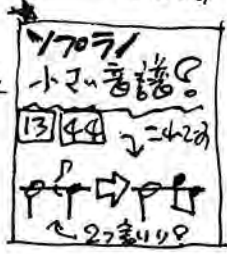 ソプラノ
小さい音譜?
13 44
これ2つ
2つ割り?